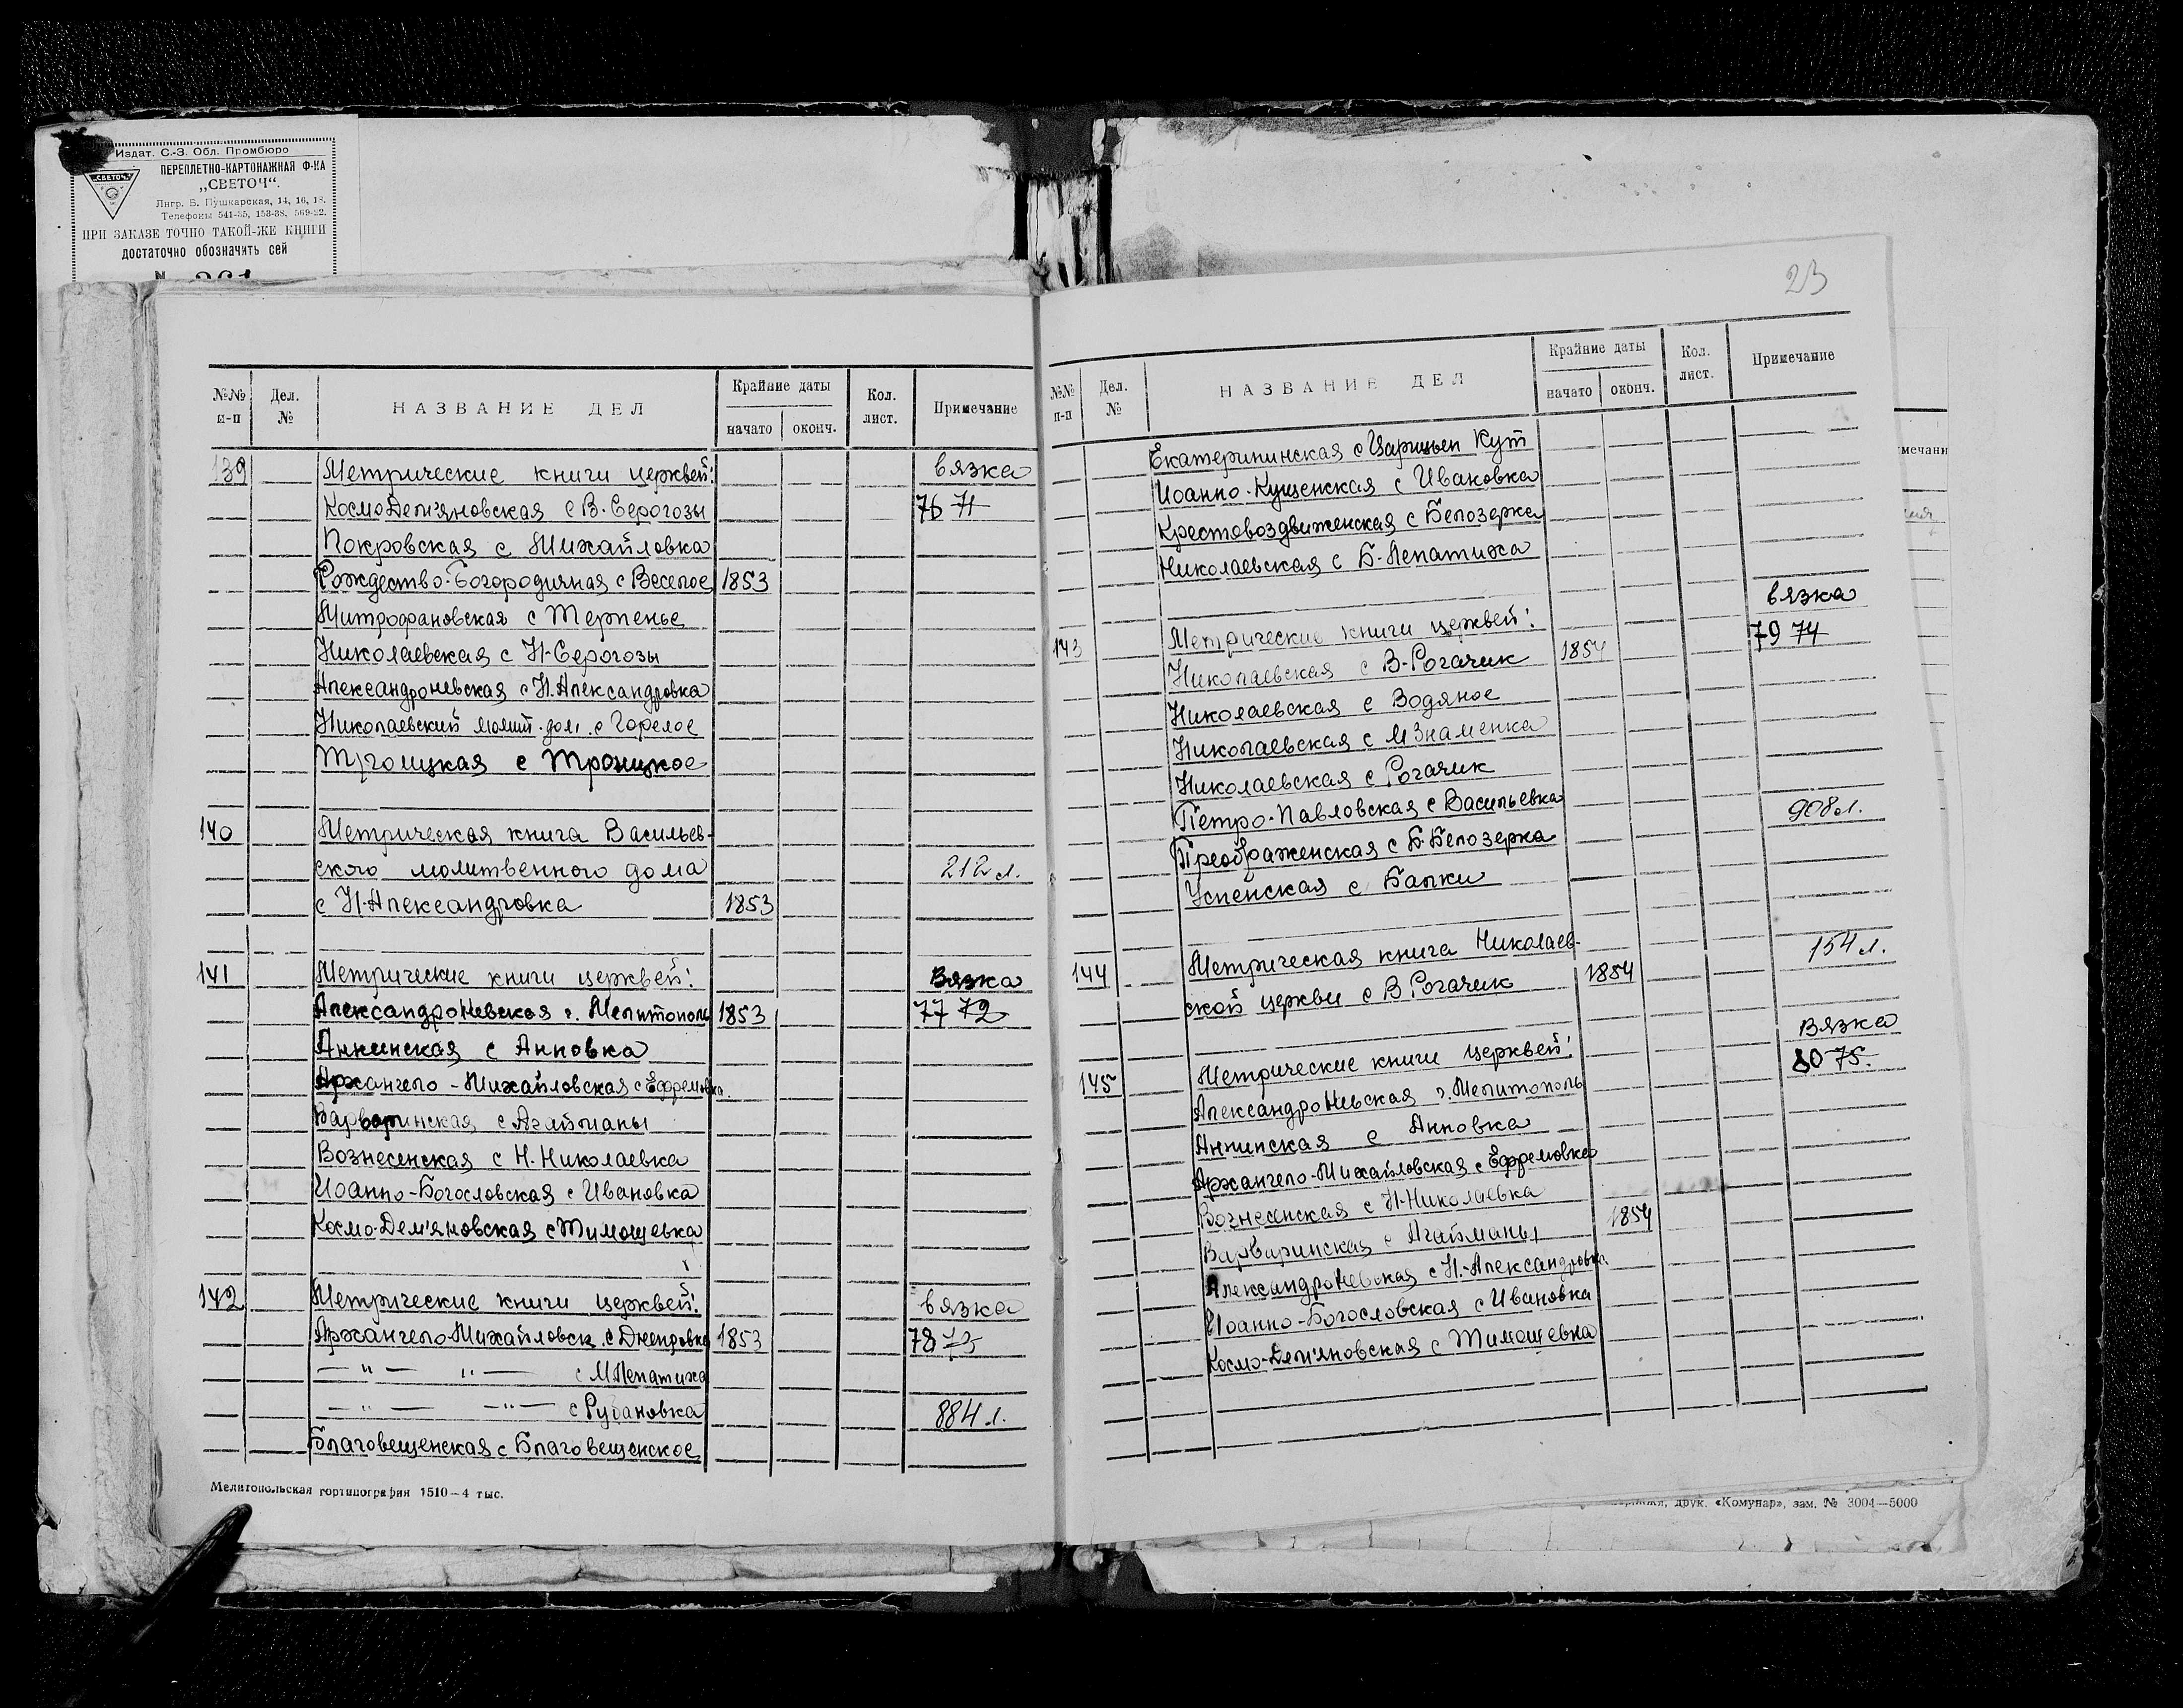 Издат. С.-З. Обл. Промбюро
ПЕРЕПЛЕТНО-КАРТОНАЖНАЯ Ф-КА
„СВЕТОЧ“
„СВЕТОЧ“.
Лнгр. Б. Пушкарская, 14, 16, 18.
Телефоны 541-35, 153-38, 569-22.
ПРИ ЗАКАЗЕ ТОЧНО ТАКОЙ-ЖЕ КНИГИ
достаточно обозначить сей
№ 261
№№ п-п Дел. № НАЗВАНИЕ ДЕЛ Крайние даты начато оконч. Кол. лист. Примечание
139 Метрические книги церквей: вязка
Космо Дем'яновская с В. Серогозы 76 71
Покровская с Михайловка
Рождество-Богородичная с Веселое 1853
Митрофановская с Терпенье
Николаевская с Н-Серогозы
Александроневская с Н.Александровка
Николаевский молит. дом. с Горелое
Троицкая с Троицкое
140 Метрическая книга Васильев-
ского молитвенного дома 212 л.
с Н-Александровка 1853
141 Метрические книги церквей: Вязка
АлександроНевская г. Мелитополь 1853 77 72
Аннинская с Анновка
Архангело-Михайловская с Ефремовка.
Варваринская с Агайманы
Вознесенская с Н. Николаевка
Иоанно-Богословская с Ивановка
Космо-Дем'яновская с Тимошевка
142 Метрические книги церквей: вязка
Архангело-Михайловск. с Днепровка 1853 78 73
— " — " — с М Лепатиха
— " — — " — с Рубановка 884 л.
Благовещенская с Благовещенское
Мелитопольская гортипография 1510—4 тыс.
23
№№ п-п Дел. № НАЗВАНИЕ ДЕЛ Крайние даты начато оконч. Кол. лист. Примечание
Екатерининская с Царицын Кут
Иоанно-Кущенская с Ивановка
Крестовоздвиженская с Белозерка
Николаевская с Б-Лепатиха
вязка
143 Метрические книги церквей: 79 74
Николаевская с В-Рогачик 1854
Николаевская с Водяное
Николаевская с М Знаменка
Николаевская с Рогачик
Петро-Павловская с Васильевка 908 л.
Преображенская с Б. Белозерка
Успенская с Балки
144 Метрическая книга Николаев- 154 л.
ской церкви с В Рогачик 1854
Вязка
145 Метрические книги церквей: 80 75.
АлександроНевская г. Мелитополь
Аннинская с Анновка
Архангело-Михайловская с Ефремовка
Вознесенская с Н-Николаевка
Варваринская с Агайманы 1854
АлександроНевская с Н.-Александровка.
Иоанно-Богословская с Ивановка
Космо-Дем'яновская с Тимошевка
друк. «Комунар», зам. № 3004—5000